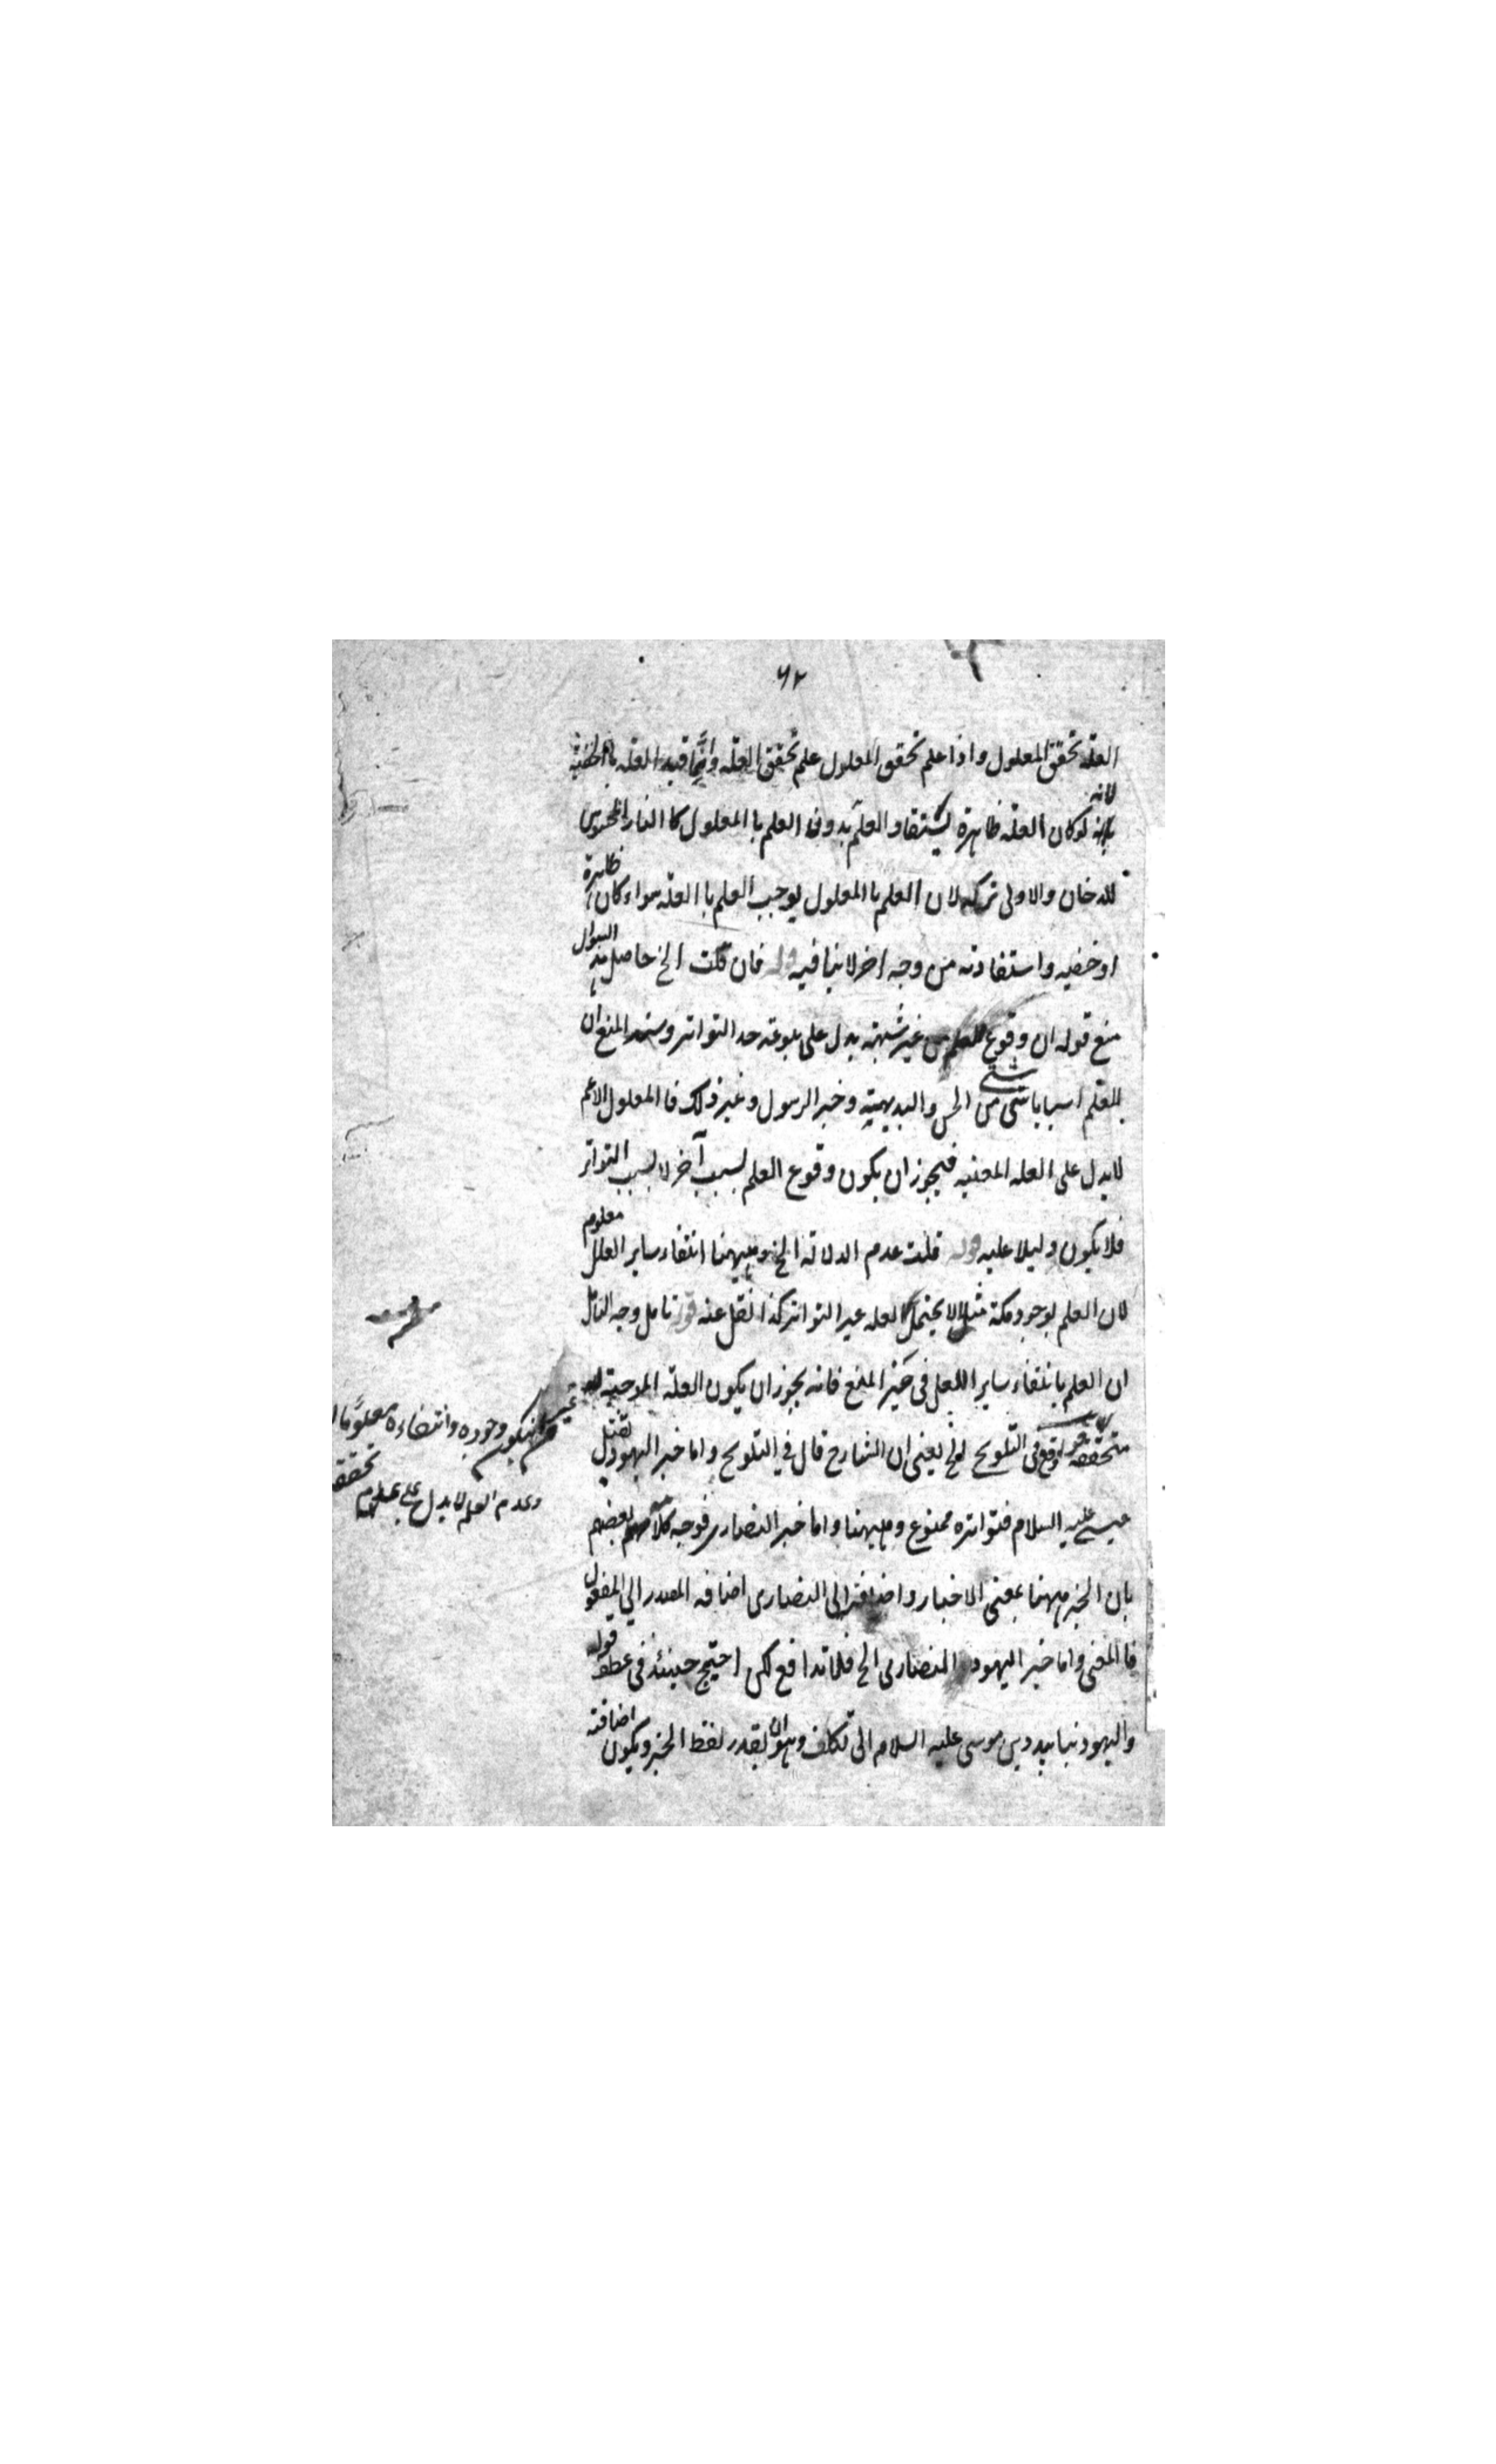 ٦٢
العلة تحقق المعلول واذا علم تحقق المعلول علم تحقق العلة وانما قيد العلة بالخفية
لانه لوكان العلة ظاهرة يستفاد العلم بدون العلم با المعلول كا النار المحسوس
للدخان والاولى تركه لان العلم با المعلول يوجب العلم با العلة سواء كان ظاهرة
او خفيه واستفادته من وجه اخر لا ينافيه قوله فان قلت الخ حاصل السؤال
منع قوله ان وقوع العلم من غير شبهة يدل على بلوغه حد التواتر وسند المنع ان
للعلم اسبابا شتى من الحس والبديهية وخبر الرسول وغير ذلك فا المعلول الاعم
لا يدل على العله المعينه فيجوز ان يكون وقوع العلم بسبب آخر لا بسبب التواتر
فلا يكون دليلا عليه قوله قلت عدم الدلالة الخ وههنا انتفاء ساير العلل معلوم
لان العلم بوجود مكة مثلا لا يحتمل العله غير التواتر كذا نقل عنه قوله تامل وجه التامل
ان العلم بانتفاء ساير العلل فى حيز المنع فانه يجوز ان يكون العلة الموجبة له
متحققه قوله وقع فى التلويح الخ يعنى ان الشارح قال في التلويح واما خبر اليهود بقتل
عيسى عليه السلام فتواتره ممنوع وههنا واما خبر النصارى فوجه كلامه بعضهم
بان الخبر ههنا بمعنى الاخبار واضافته الى النصارى اضافه المصدر الي المفعول
فا المعنى واما خبر اليهود النصارى الخ فلا تدافع لكن احتيج حينئذ فى عطف قوله
واليهود بتابيد دين موسى عليه السلام الى تكلف وهو ان يقدر لفظ الخبر ويكون اضافته
غير ان يكون وجوده وانتفاءه معلوما
وعدم العلم لا يدل على عدم تحققه